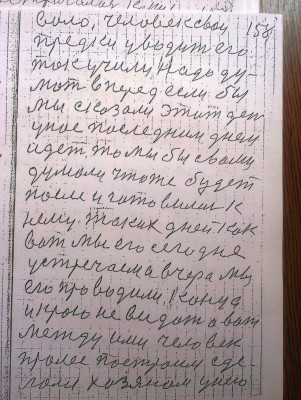 158
было, человек свои
предки уводит его
так учили, надо ду-
мат вперед если бы
мы сказали этот ден
у нас последним днем
идет то мы бы с вами
думали что же будет
после и готовилис к
нему. таких дней как
вот мы его сегодне
устречаем а вчера мы
его проводили. Конца
и краю не видат а вот
между ими человек
пролег построим сде-
лали хозяном у него